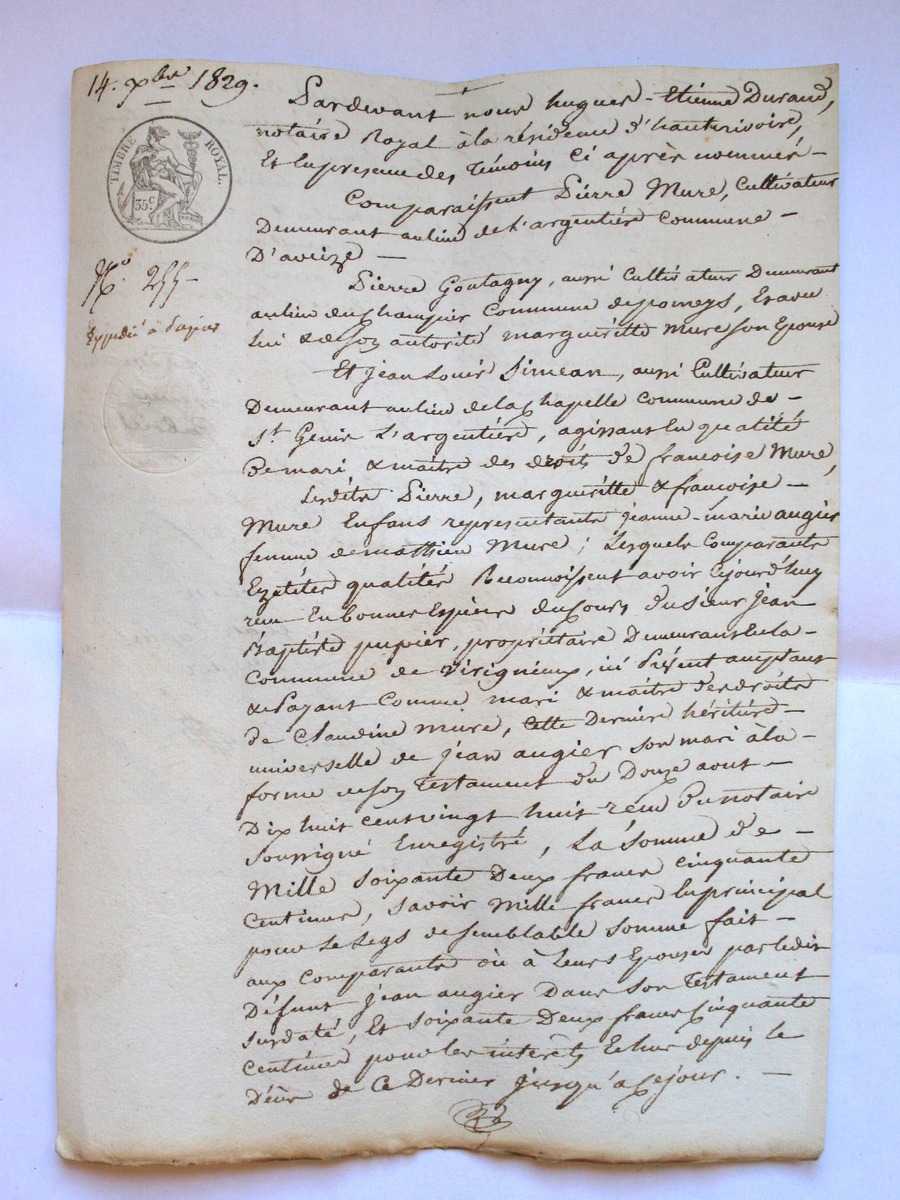 14. xbre 1829.
TIMBRE ROYAL.
35 c
No. 255
Expedié à Pupier
Pardevant nous hugues-Etienne Durand,
notaire Royal à la résidence d'hauterivoire,
Et En presence des Témoins ci après nommés -
Comparaissent Pierre Mure, Cultivateur
Demeurant au lieu de l'argentiére commune -
D'aveize -
Pierre Goutagny, aussi Cultivateur Demeurant
au lieu du Champier Commune de pomeys, Et avec
lui & de son autorité margueritte Mure son Epouse
Et Jean Louis Simean, aussi Cultivateur
Demeurant au lieu de la Chapelle commune de -
St. Genis L'argentiére, agissant En qualité
De mari & maitre des droits de françoise Mure,
Lesdits Pierre, margueritte & françoise -
Mure Enfans representants jeanne-marie augier
femme de mathieu Mure ; Lesquels Comparants
Ezdites qualités Reconnoissent avoir cejourd'huy
reçu En bonnes Espèces du Cours du sieur Jean
Baptiste pupier, propriétaire Demeurant En la -
Commune de Virigneux, ici Présent acceptant
& Payant Comme mari & maitre des droits
de Claudine Mure, cette Derniére héritiére -
universelle de jean augier son mari à la -
forme de son Testament du Douze aout -
Dix huit cent vingt huit recu Du notaire
Soussigné Enregistré, La Somme de -
Mille Soixante Deux francs cinquante
Centimes, Savoir Mille francs En principal
pour le Legs de semblable Somme fait -
aux Comparants ou à Leurs Epouses par ledit
Défunt Jean augier Dans son Testament
Susdaté, Et Soixante Deux francs Cinquante
Centimes pour les interêts Echus depuis le
Décès de Ce Dernier jusqu'à cejour. -